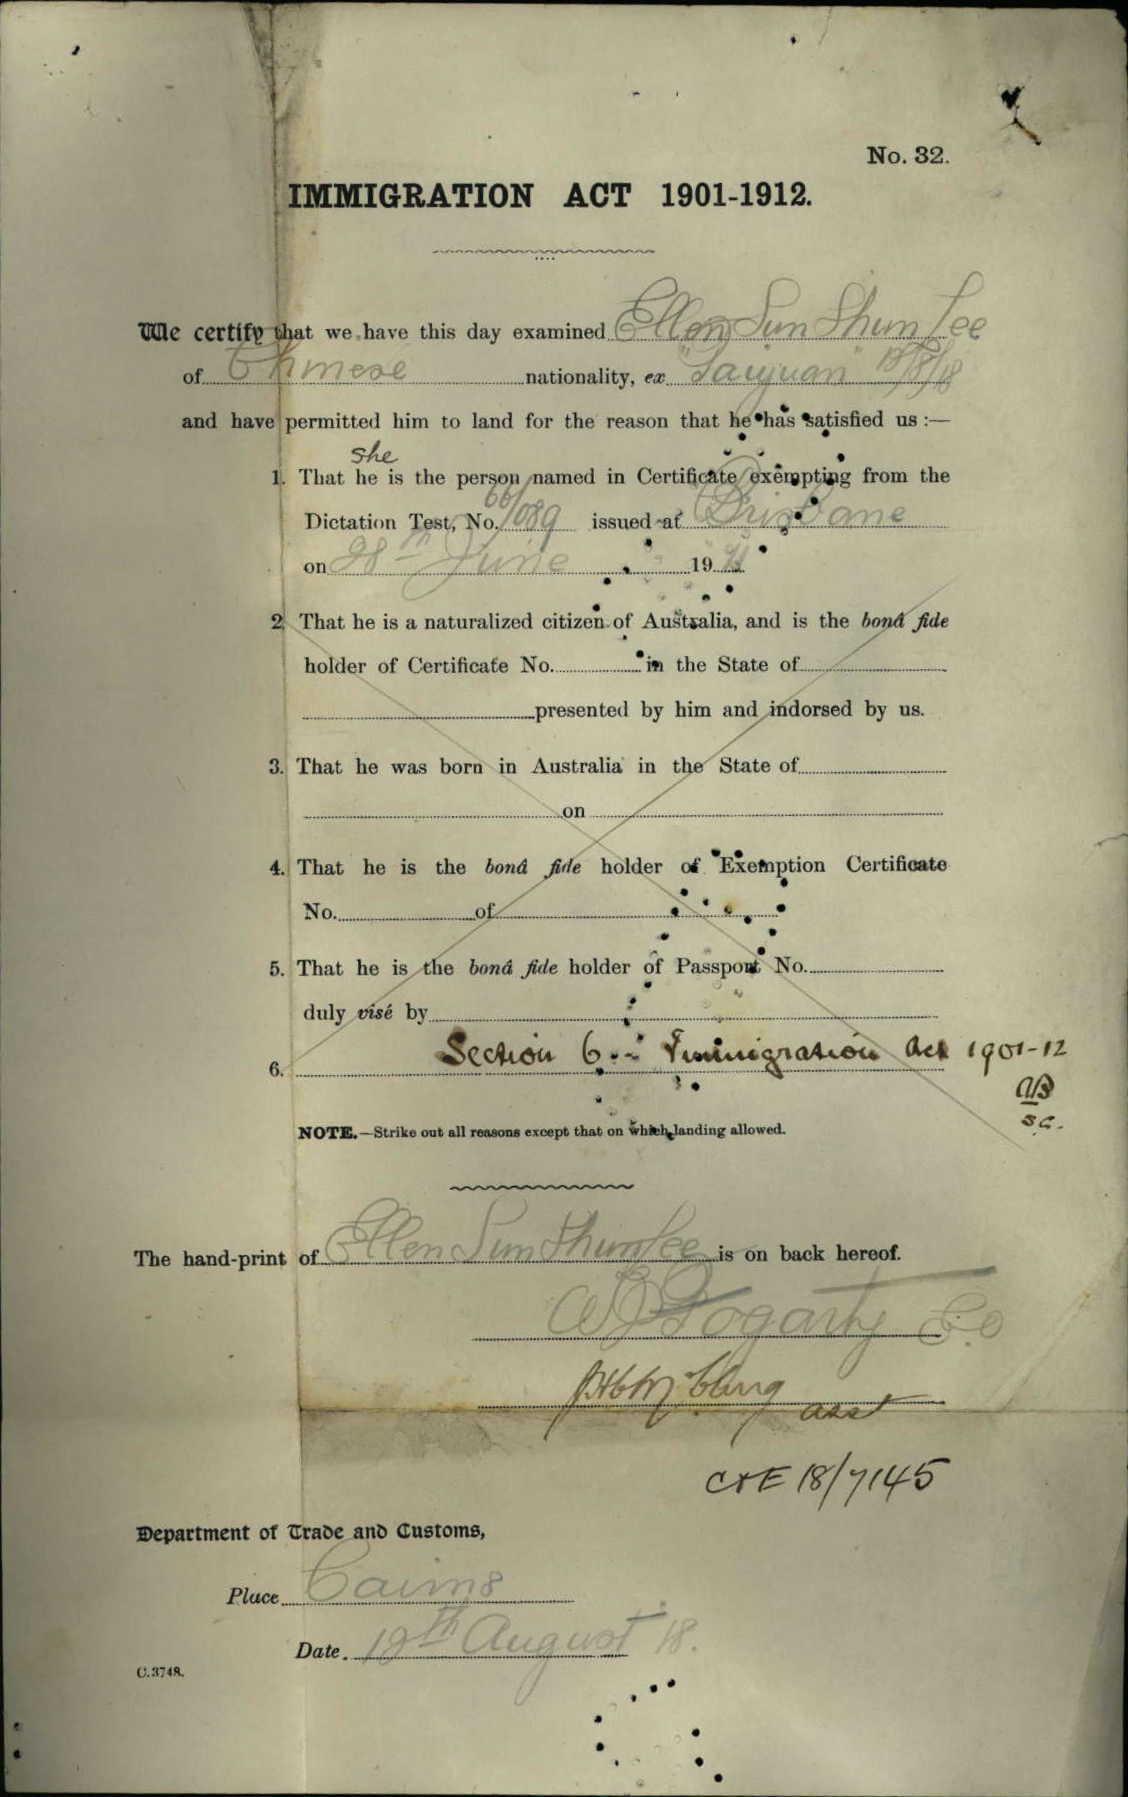 No. 32.
IMMIGRATION ACT 1901-1912.
We certify that we have this day examined Ellen Sun Shum Lee
of Chinese nationality, ex "Taiyuan"
and have permitted him to land for the reason that he has satisfied us :—
she
1. That he is the person named in Certificate exempting from the
Dictation Test, No. 66/089 issued at Brisbane
on 28th June 19
2. That he is a naturalized citizen of Australia, and is the bonâ fide
holder of Certificate No. in the State of
presented by him and indorsed by us.
3. That he was born in Australia in the State of
on
4. That he is the bonâ fide holder of Exemption Certificate
No. of
5. That he is the bonâ fide holder of Passport No.
duly visé by
6. Section 6 Immigration Act 1901-12
NOTE.—Strike out all reasons except that on which landing allowed.
The hand-print of Ellen Sun Shum Lee is on back hereof.
Fogarty
asst
C&E 18/7145
Department of Trade and Customs,
Place Cairns
Date. August 18.
C.3748.